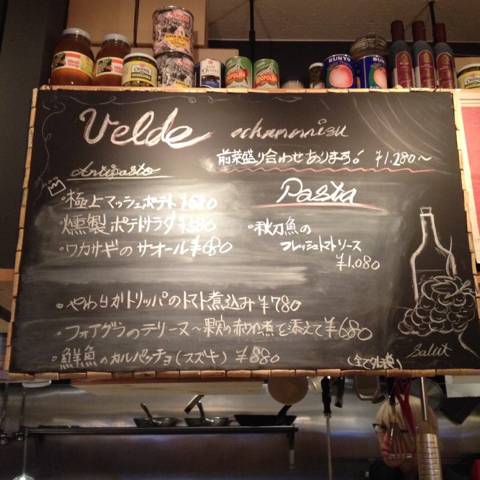 Velde ochanomizu
前菜盛り合わせあります! ¥1.280~
Antipasto
・極上マッシュポテト ¥680
燻製ポテトサラダ ¥580
・ワカサギのサオール ¥680
Pasta
・秋刀魚の
フレッシュトマトソース
¥1.080
・やわらかトリッパのトマト煮込み ¥780
・フォアグラのテリーヌ~果実の赤ワイン煮を添えて ¥680
・鮮魚のカルパッチョ(スズキ) ¥880
Salut
HUNTS
HUNTS